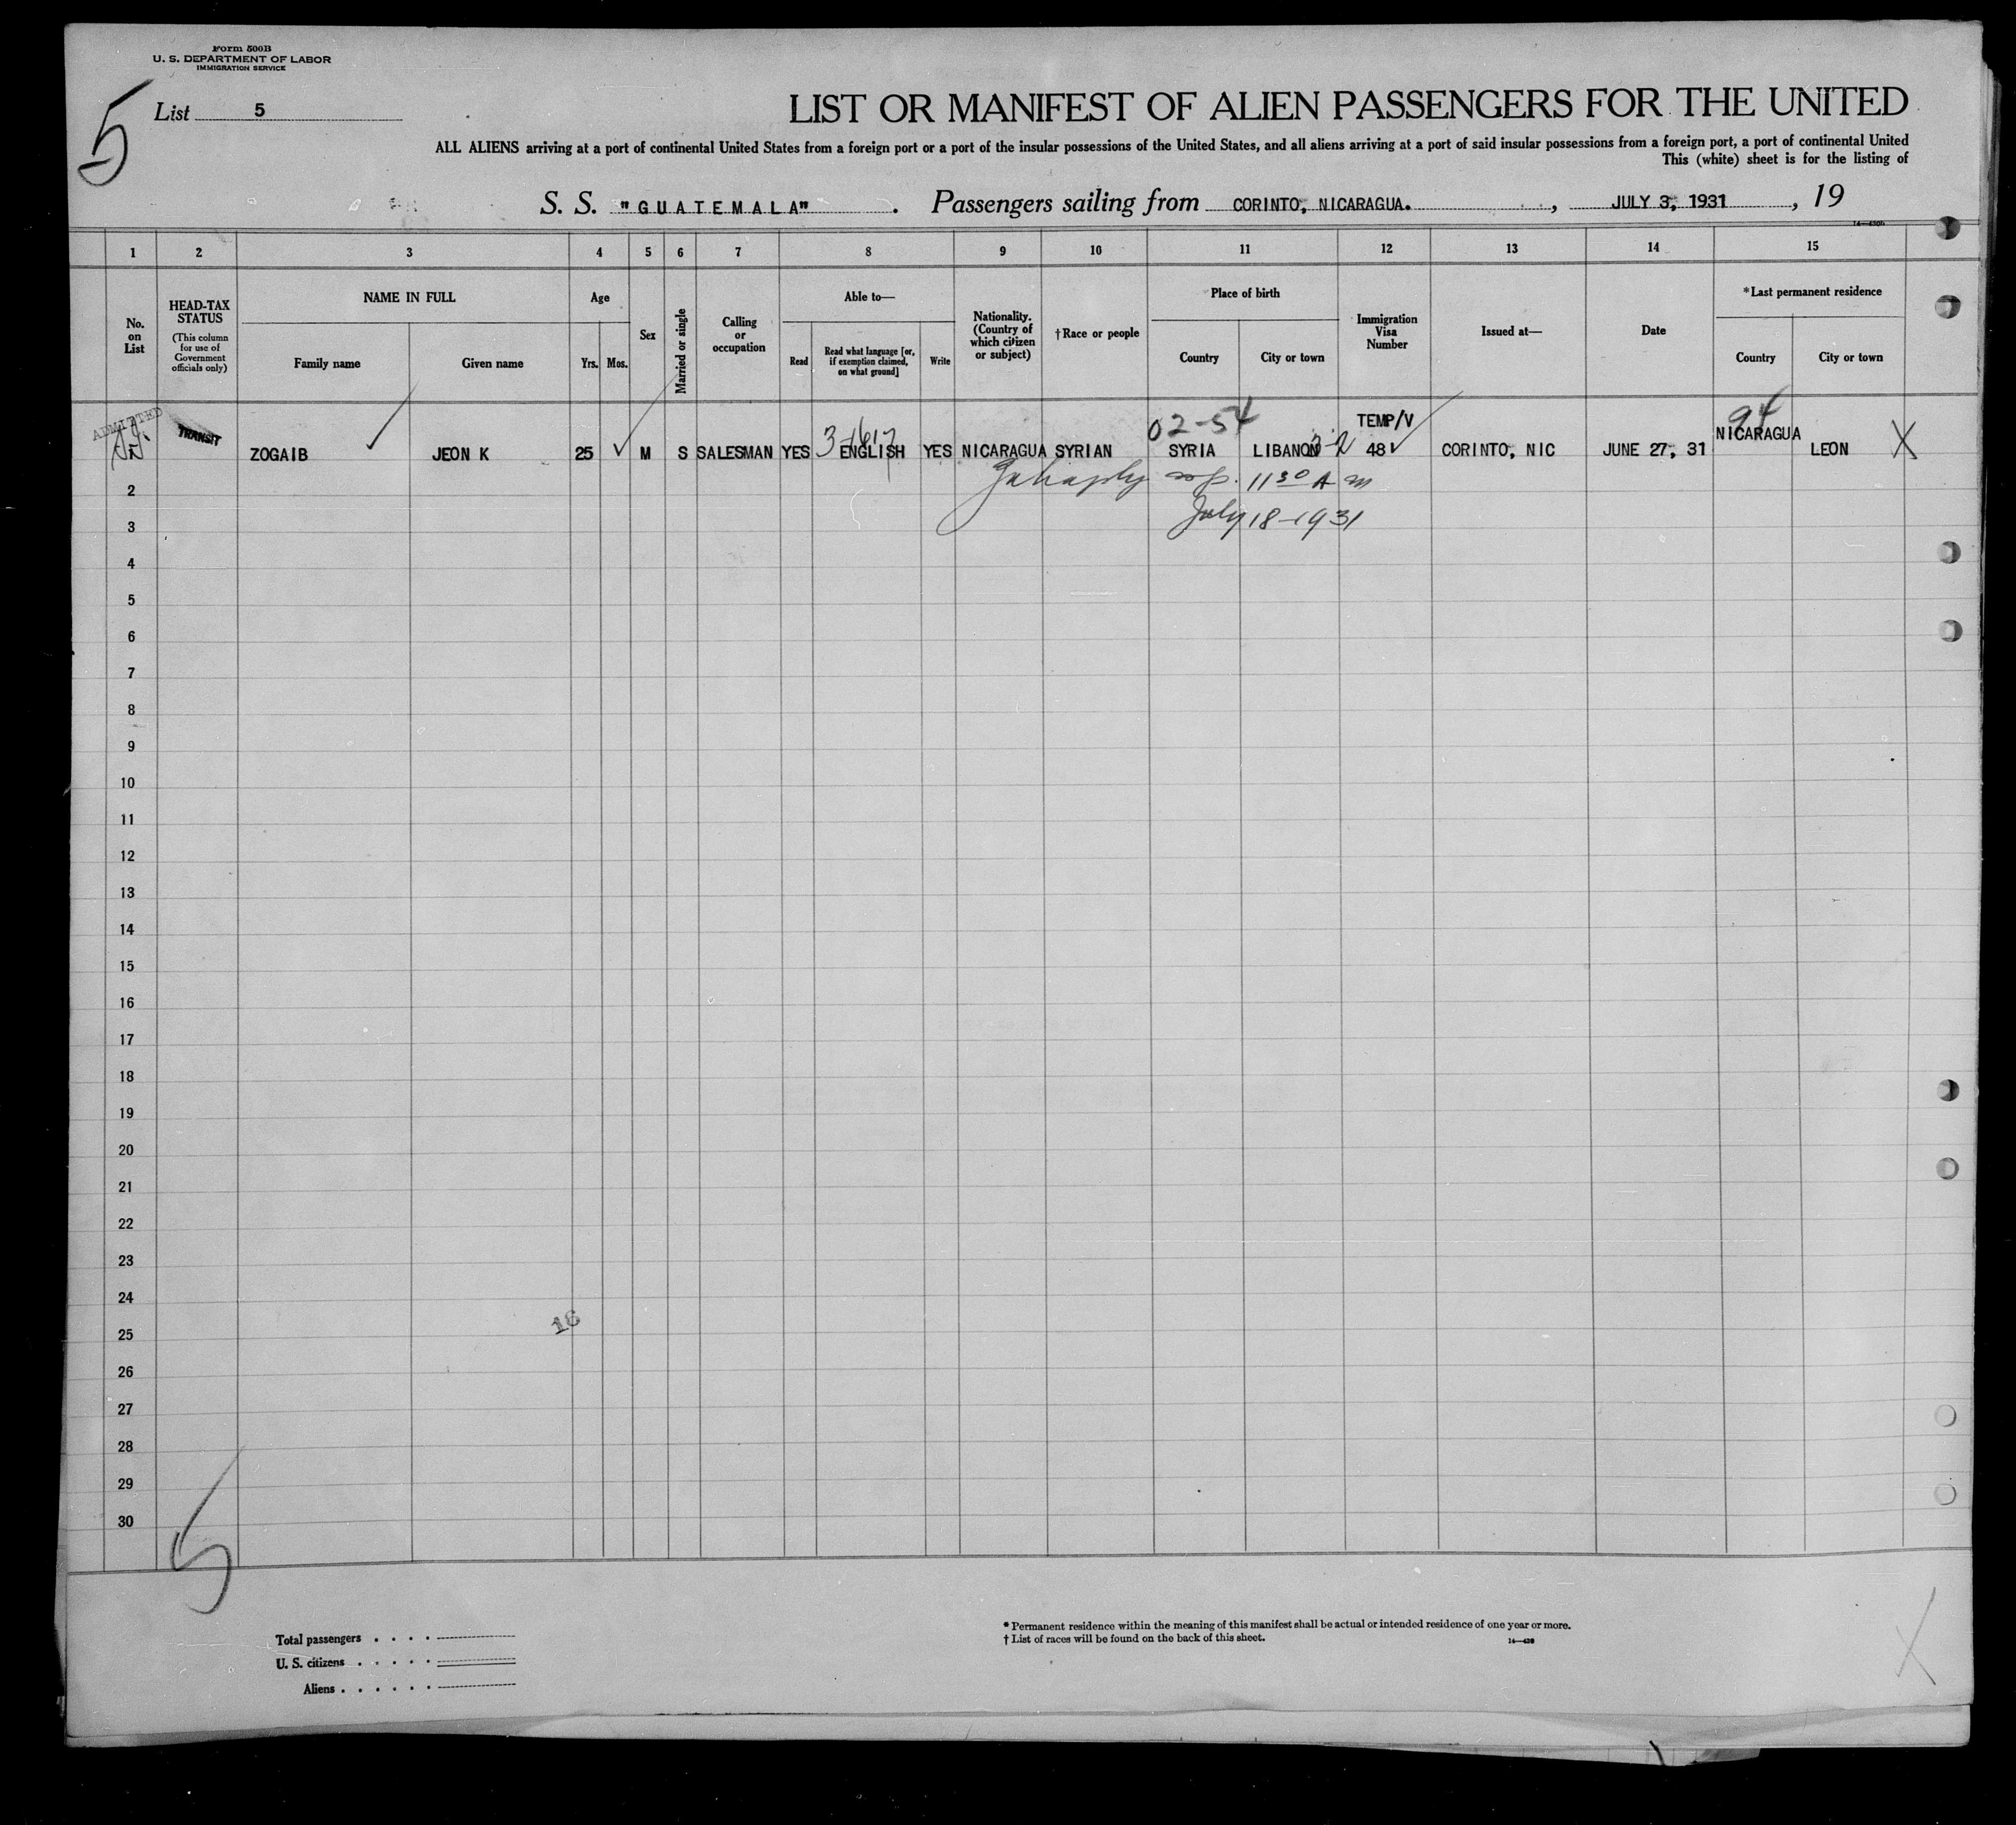 Form 500B
U. S. DEPARTMENT OF LABOR
IMMIGRATION SERVICE
5
List 5
LIST OR MANIFEST OF ALIEN PASSENGERS FOR THE UNITED
ALL ALIENS arriving at a port of continental United States from a foreign port or a port of the insular possessions of the United States, and all aliens arriving at a port of said insular possessions from a foreign port, a port of continental United
This (white) sheet is for the listing of
S. S. "GUATEMALA". Passengers sailing from CORINTO, NICARAGUA. , JULY 3, 1931 , 19
1 2 3 4 5 6 7 8 9 10 11 12 13 14 15
No. on List
HEAD-TAX STATUS
(This column for use of Government officials only)
NAME IN FULL
Family name
Given name
Age
Yrs. Mos.
Sex
Married or single
Calling or occupation
Able to—
Read
Read what language [or, if exemption claimed, on what ground]
Write
Nationality. (Country of which citizen or subject)
†Race or people
Place of birth
Country
City or town
Immigration Visa Number
Issued at—
Date
*Last permanent residence
Country
City or town
ADMITTED
TRANSIT
02-54
TEMP/V
94
ZOGAIB JEON K 25 M S SALESMAN YES ENGLISH YES NICARAGUA SYRIAN SYRIA LIBANON 48 CORINTO, NIC JUNE 27, 31 NICARAGUA LEON X
11 30 A m
July 18-1931
2
3
4
5
6
7
8
9
10
11
12
13
14
15
16
17
18
19
20
21
22
23
24
16
25
26
27
28
29
30
5
Total passengers . . . .
U. S. citizens . . . . .
Aliens . . . . . .
* Permanent residence within the meaning of this manifest shall be actual or intended residence of one year or more.
† List of races will be found on the back of this sheet.
14—430
X